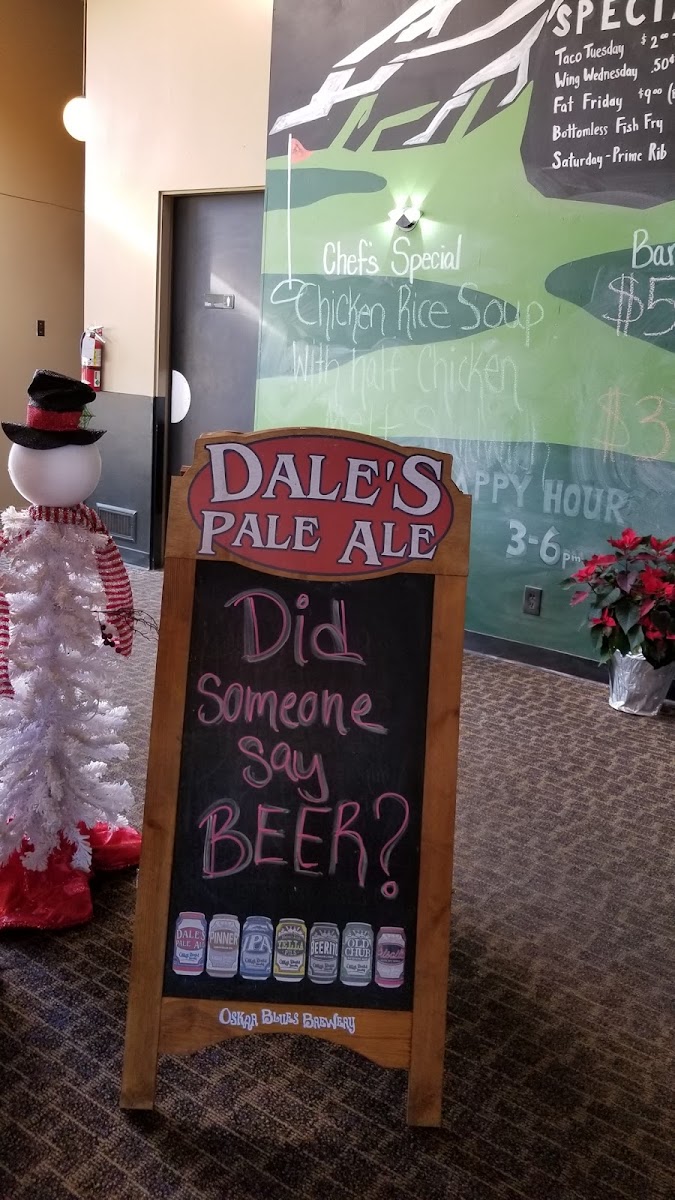 SPECIA
Taco Tuesday $2.00
Wing Wednesday .50¢
Fat Friday $9.00
Bottomless Fish Fry
Saturday - Prime Rib
Chef's Special
Chicken Rice Soup
With Half Chicken
Bar
$5
$3
APPY HOUR
3-6pm
DALE'S
PALE ALE
Did
someone
say
BEER?
DALE'S
PALE ALE
PINNER
IPA
BEERITO
OLD
CHUB
OSKAR BLUES BREWERY